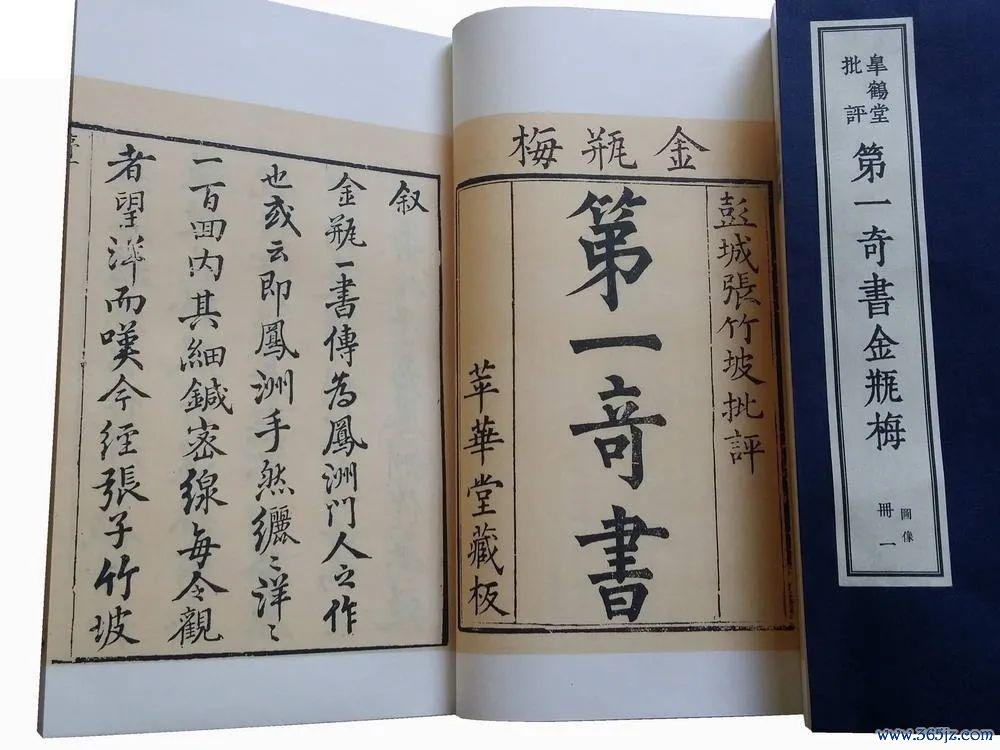 皋鶴堂
批評
第一奇書金瓶梅
圖像
冊一
金瓶梅
彭城張竹坡批評
第一奇書
苹華堂藏板
叙
金瓶一書傳為鳳洲門人之作
也或云即鳳洲手然纚〻洋〻
一百回内其細鍼密線每令觀
者望洋而嘆今經張子竹坡
www.365jz.com